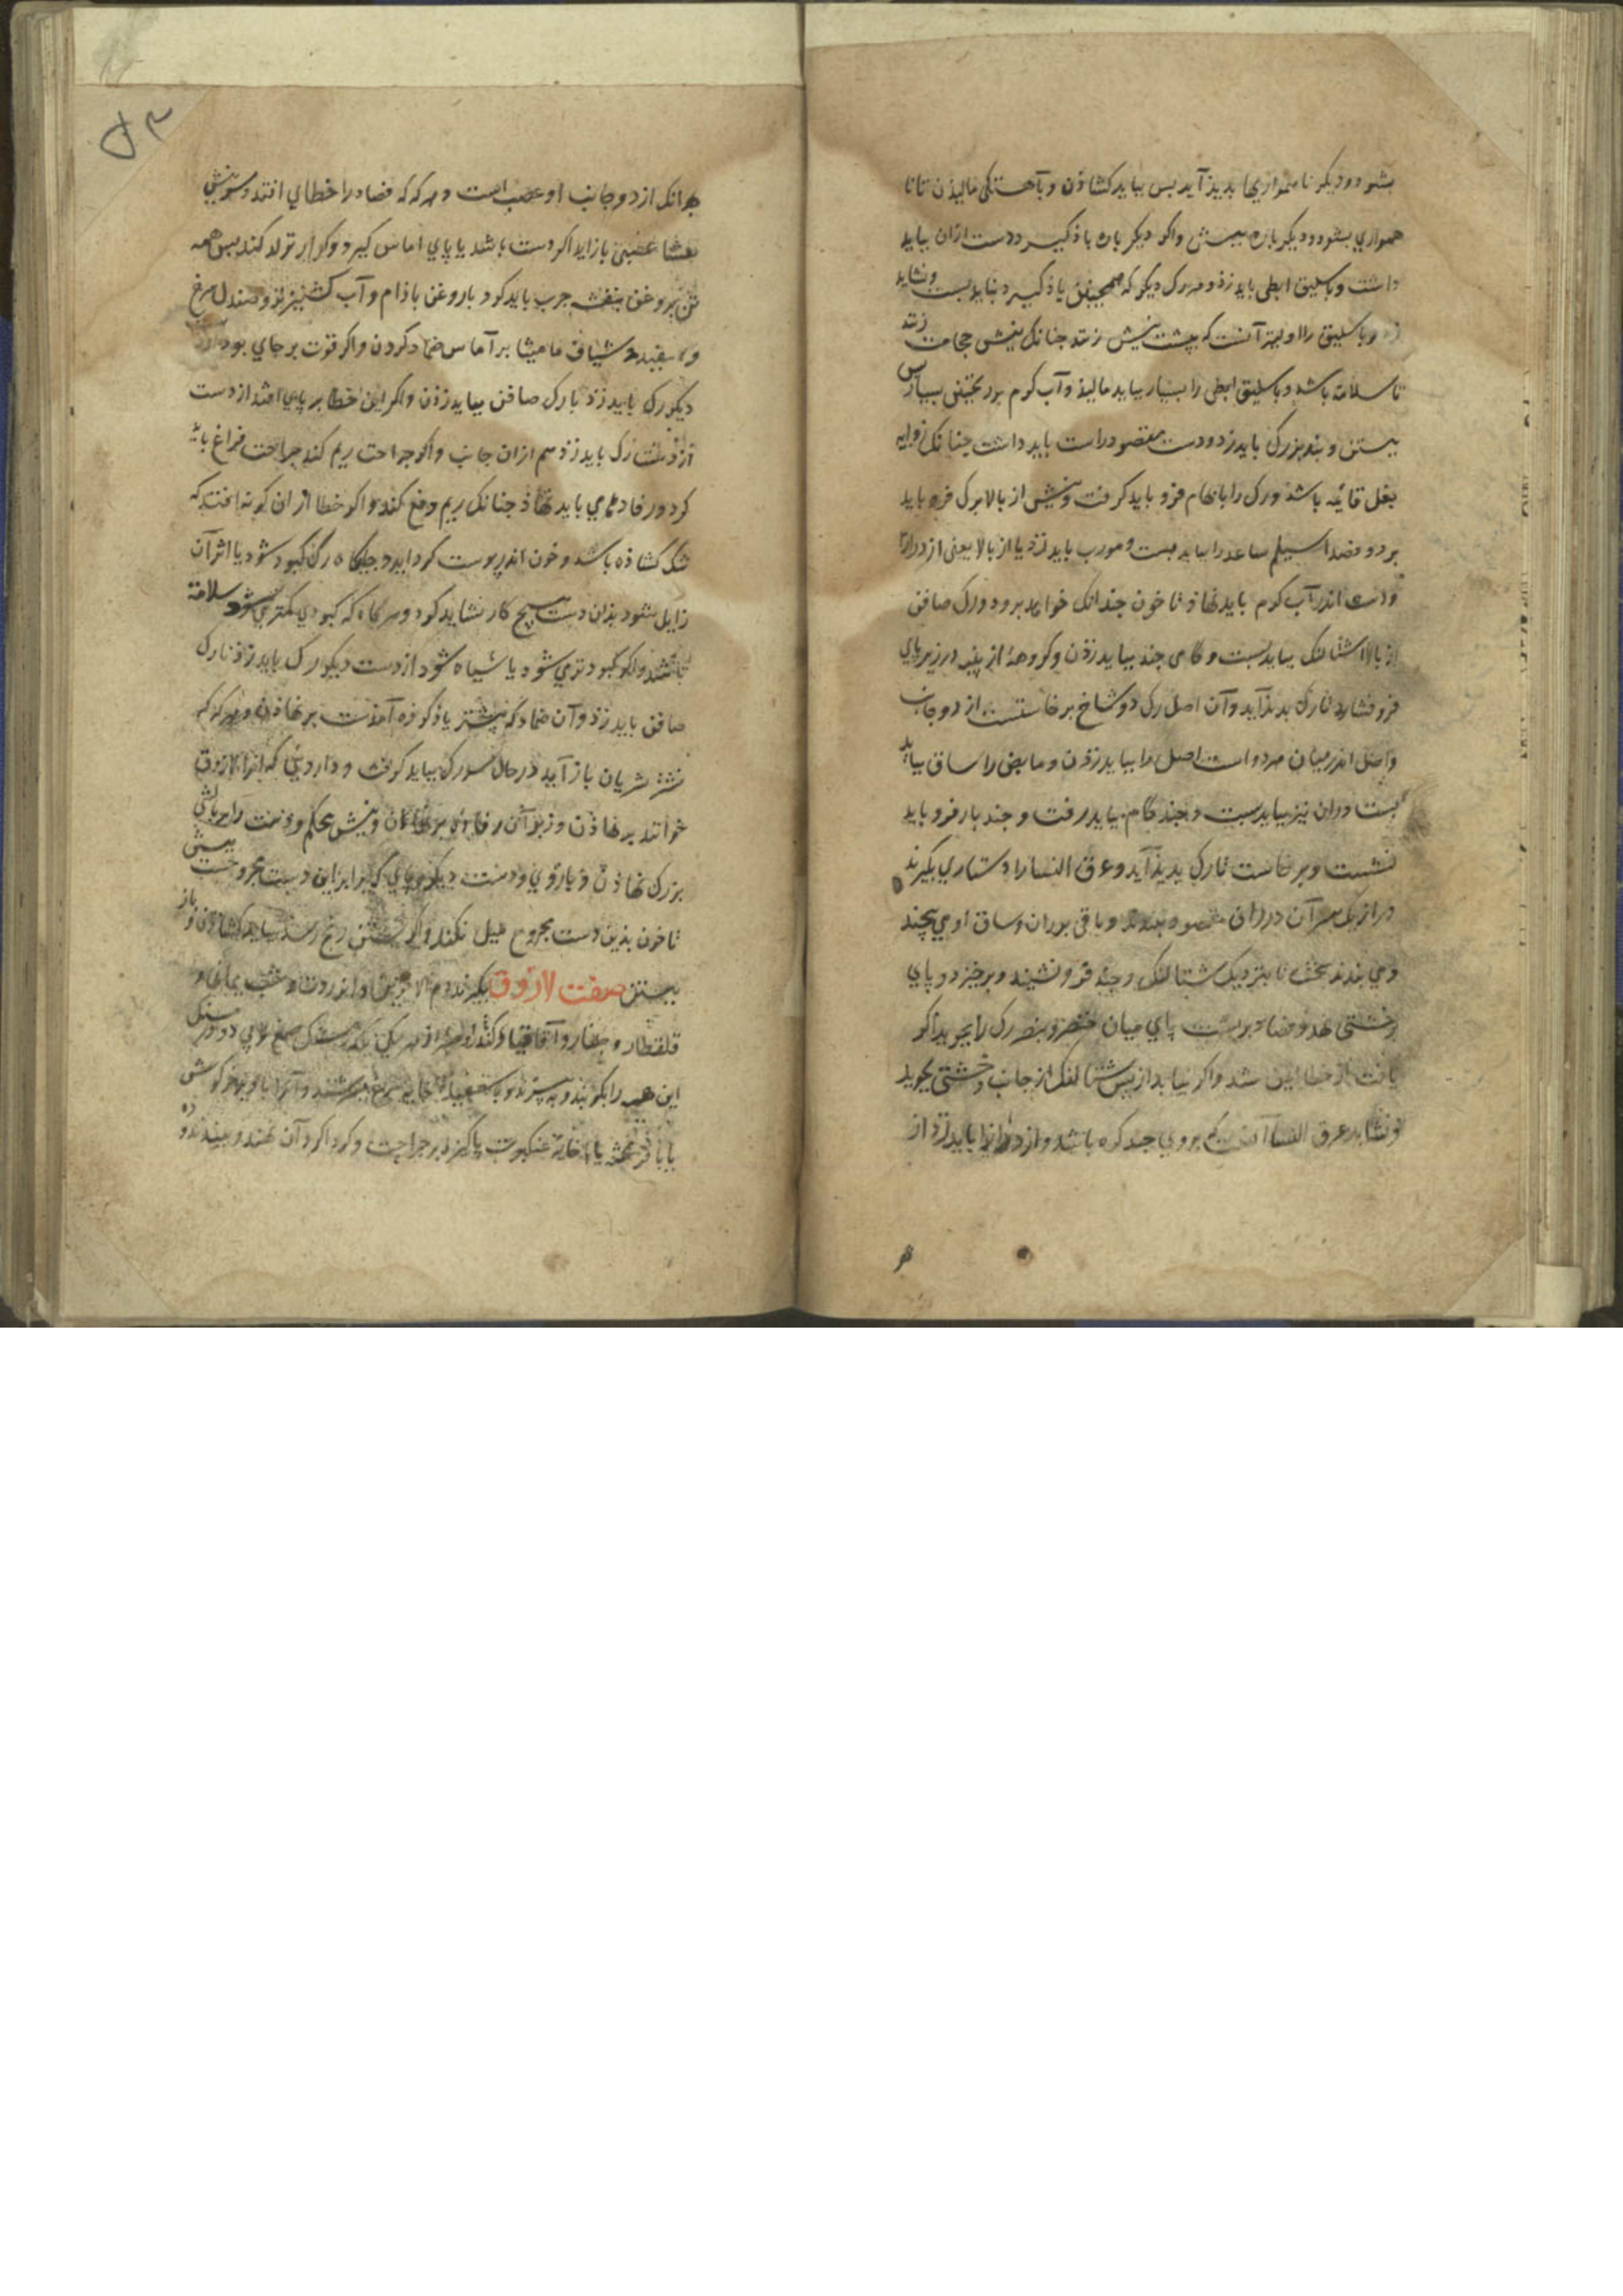 بشود و دیکر ناهمواریها بدیذ آید بس بباید کشاذن و بآهستکی مالیذن تا نا
همواری بشود و دیکر باره ببستن واکر دیکر باره باذ کیرد دست ازان بباید
داشت و باسلیق ابطی باید زذ و هر رک دیکر که همجنین باذ کیرد نباید بست و نشاید
زد و باسلیق را اولیتر آنست که ببشت نیش زنند جنانک نیش حجامت زنند
تا سلامة باشد و باسلیق ابطی را بسیار بباید مالیذ و آب کرم بر ریختن بس
ببستن و بند بزرک باید زد و دست مقصود راست باید داشت جنانک زوایه
بغل قائمه باشد و رک را بابهام فرو باید کرفت و نیش از بالا برک فرو باید
برد و فصد اسیلم ساعد را بباید بست و مورب باید زد یا از بالا یعنی از درازا
و دست اندر آب کرم باید نهاذ تا خون جندانک خواهد برود و رک صافن
از بالا اشتالنک بباید بست و کامی جند بباید رفتن و کروهه از پنبه در زیر پای
فرو فشارد تا رک بدیذ آید و آن اصل رکی دو شاخ برخاستست از دو جانب
و اصل اندر میان هر دو است اصل را بباید زذن و مابض را ساق بباید
بست و ران نیز بباید بست و جند کام بباید رفت و جند بار فرو باید
نشست و برخاست تا رک بدیذ آید و عرق النسا را دستاری بکیرند
دراز یک سر آن در ران مقصود بندند و باقی بر ران و ساق او می بیچند
و می بندند سخت تا بنزدیک شتالنک و جند فرو نشیند و برخیزد و پای
بر خشتی نهد و فصاد بر پشت پای میان خنصر و بنصر رک را بجوید اکر
یافت از خطا ایمن شد و اکر نیابد از پس شتالنک از جانب وحشی بجوید
و نشاید عرق النسا آنست که بروی جند کره باشد و از درازا باید زد از
بهرانک از دو جانب او عصب است و هر که که فصاد را خطای افتد و سر نیش
بعشا عصبی باز اید اکر دست باشد یا پای اماس کیرد و کزاز تولد کند بس همه
تن بروغن بنفشه جرب باید کرد با روغن باذام و آب کشنیز تر و صندل سرخ
و سبیده و شیاف مامیثا بر آماس ضماد کردن و اکر قوت بر جای بود از
دیکر رک باید زذ یا رک صافن بباید زذن و اکر این خطا بر پای افتد از دست
از دست رک باید زذ هم ازان جانب و اکر جراحت ریم کند جراحت فراغ باید
کرد و رفادهای باید نهاذ جنانک ریم دفع کند و اکر خطا از ان کونه افتد که
تنک کشاذه باشد و خون اندر پوست کرد اید و جایکاه رک کبود شود یا اثر آن
زایل شود بذان دست هیچ کار نشاید کرد و هرکاه که کبودی کمتر می شود سلامة
باشد و اکر کبودتر می شود یا سیاه شود از دست دیکر رک باید زذ یا رک
صافن باید زذ و آن ضماد که پیشتر یاذ کرده آمذست برنهاذن و هر که که
نشتر شریان باز آید در حال سر رک بباید کرفت و داروئی که انرا لازوق
خوانند برنهاذن و زبر آن رفادهٔ برنهاذن و بستن محکم و دست را بر بالشی
بزرک نهاذن و بازوی و دست دیکر و پای کی برابر این دست مجروحست ببستن
تا خون بذین دست مجروح میل نکند و اکر از بستن رنج رسد بباید کشاذن و باز
ببستن صفت لازوق بکیرند دم الاخوین و انزروت و شب یمانی و
قلقطار و جلنار و آقاقیا و کندر از هر یکی یکدرمسنک صمغ عربی دو درمسنک
این همه را بکوبند و ببیزند و بسفیدهٔ خایه مرغ بسرشند و آنرا با وبر خرکوش
یا با قز محشو یا با خانهٔ عنکبوت پاکیزه بر جراحت و کرداکرد آن نهند و ببندند و